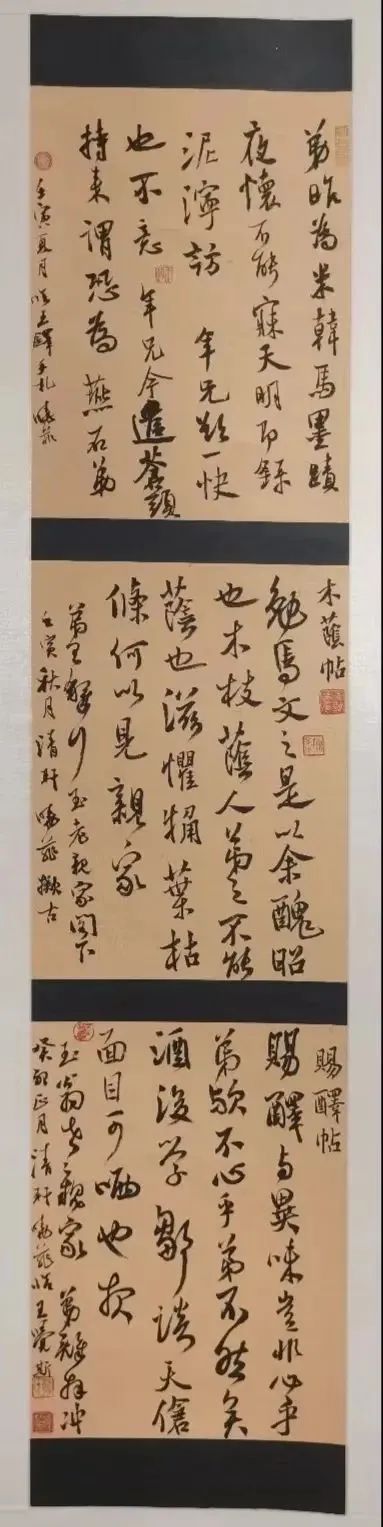 弟昨為米韓馬墨蹟
夜懷不能寐天明即
泥濘訪 年兄欲一快
也不意 年兄今遣蒼頭
持來謂恐為燕石弟
壬寅夏月 王鐸手札
木蔭帖
勉焉文之是以余醜昭
也木枝蔭人弟之不能
蔭也滋懼犕葉枯
條何以見親家
弟王鐸行 玉老親家閣下
壬寅秋月清軒 擬古
賜醳帖
賜醳与異味豈非心乎
弟歟不心乎弟不然矣
酒後学鄒談天傖
面目可哂也衣
玉翁老親家 弟鐸拜冲
癸卯正月清軒 臨王覺斯